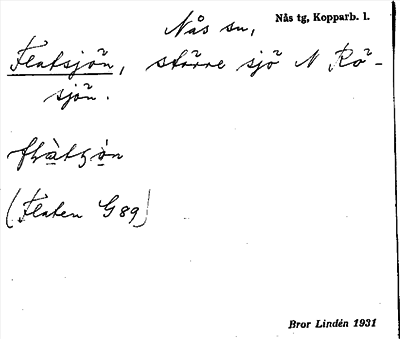 Nås sn,
Nås tg, Kopparb. l.
Flatsjön, större sjö N Rö-
sjön.
(Flaten G89)
Bror Lindén 1931